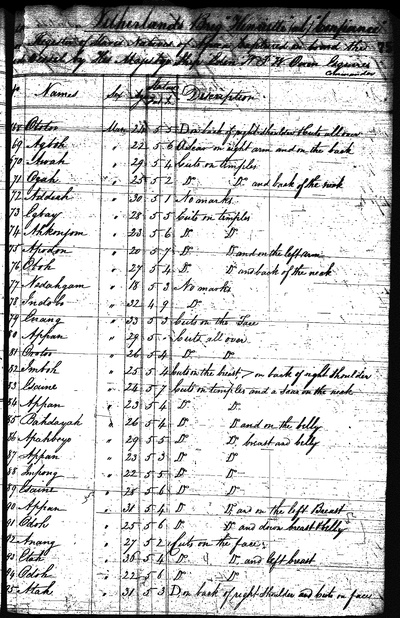 Netherlands Brig "Henriette"
Register of Slaves Natives of Africa Captured on board the
Vessel by His Majesty's Ship Eden W. F. W. Owen Esquire
Commander
Names Sex Age Stature Feet In. Description
68 Ototo Man 24 5 5 Do on back of right shoulder & Cuts all over
69 Agboh " 22 5 6 A scar on right arm and on the back
70 " 29 5 4 Cuts on temples
71 Opah " 23 5 2 Do Do and back of the neck
72 Addeah " 30 5 1 No marks
73 Egbay " 28 5 5 Cuts on temples
74 Ahkonjom " 23 5 6 Do Do
75 " 20 5 7 Do Do and on the left arm
76 Oboh " 27 5 4 Do Do and back of the neck
77 " 18 5 3 No marks
78 Indobo " 32 4 9 Do
79 Enang " 33 5 3 Cuts on the Face
80 Appan " 29 5 - Cuts all over
81 " 26 5 4 Do Do
82 Imboh " 25 5 4 Cuts on the breast on back of right shoulder
83 Essine " 24 5 7 Cuts on temples and a scar on the neck
84 Appan " 23 5 4 Do Do
85 Dahdayah " 26 5 4 Do Do and on the belly
86 Apahboyo " 29 5 5 Do Do breast and belly
87 Appan " 23 5 3 Do Do
88 Impong " 22 5 5 Do Do
89 Essine " 28 5 6 Do Do
90 Appan " 31 5 4 Do Do and on the left Breast
91 Edoh " 25 5 6 Do Do and down breast & belly
92 Anang " 27 5 2 Cuts on the face
93 " 36 5 4 Do Do and left breast
94 Odoh " 22 5 6 Do Do
95 Atah " 31 5 3 D on back of right Shoulder and cuts on face